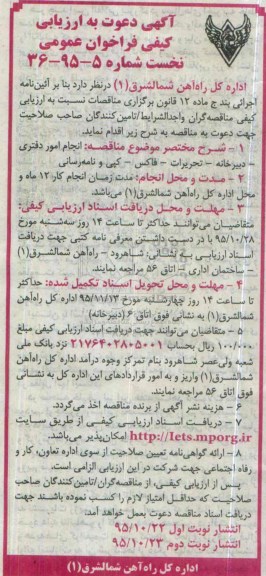 آگهی دعوت به ارزیابی
کیفی فراخوان عمومی
نخست شماره ۵-۹۵-۳۶
اداره کل راه‌آهن شمالشرق(۱) درنظر دارد بنا بر آئین‌نامه
اجرائی بند ج ماده ۱۲ قانون برگزاری مناقصات نسبت به ارزیابی
کیفی مناقصه‌گران واجدالشرایط/تامین‌کنندگان صاحب صلاحیت
جهت دعوت به مناقصه به شرح زیر اقدام نماید.
۱ - شرح مختصر موضوع مناقصه: انجام امور دفتری
- دبیرخانه - تحریرات - فاکس - کپی و نامه‌رسانی
۲ - مدت و محل انجام: مدت زمان انجام کار ۱۲ ماه و
محل اداره کل راه‌آهن شمالشرق(۱) می‌باشد.
۳ - مهلت و محل دریافت اسناد ارزیابی کیفی:
متقاضیان می‌توانند حداکثر تا ساعت ۱۴ روز سه‌شنبه مورخ
۹۵/۱۰/۲۸ با در دست داشتن معرفی نامه کتبی جهت دریافت
اسناد ارزیابی به نشانی: شاهرود - راه‌آهن شمالشرق(۱)
- ساختمان اداری - اتاق ۵۶ مراجعه نمایند.
۴ - مهلت و محل تحویل اسناد تکمیل شده: حداکثر
تا ساعت ۱۴ روز چهارشنبه مورخ ۹۵/۱۱/۱۳ اداره کل راه‌آهن
شمالشرق(۱) به نشانی فوق اتاق ۶ (دبیرخانه)
۵ - متقاضیان می توانند جهت دریافت اسناد ارزیابی کیفی مبلغ
۱۰۰/۰۰۰ ریال بحساب ۲۱۷۶۴۰۲۸۰۵۰۰۱ نزد بانک ملی
شعبه ولی‌عصر شاهرود بنام تمرکز وجوه درآمد اداره کل راه‌آهن
شمالشرق(۱) واریز و به امور قراردادهای این اداره کل به نشانی
فوق اتاق ۵۶ مراجعه نمایند.
۶ - هزینه نشر آگهی از برنده مناقصه اخذ می‌گردد.
۷ - دریافت اسناد ارزیابی کیفی از طریق سایت
http://Iets.mporg.ir امکان‌پذیر می‌باشد.
۸ - ارائه گواهی‌نامه تعیین صلاحیت از سوی اداره تعاون، کار و
رفاه اجتماعی جهت شرکت در این ارزیابی الزامی است.
پس از ارزیابی کیفی، از مناقصه‌گران/تامین‌کنندگان صاحب
صلاحیت که حداقل امتیاز لازم را کسب نموده باشند جهت
دریافت اسناد مناقصه دعوت بعمل خواهد آمد:
انتشار نوبت اول ۹۵/۱۰/۲۲
انتشار نوبت دوم ۹۵/۱۰/۲۳
اداره کل راه‌آهن شمالشرق(۱)